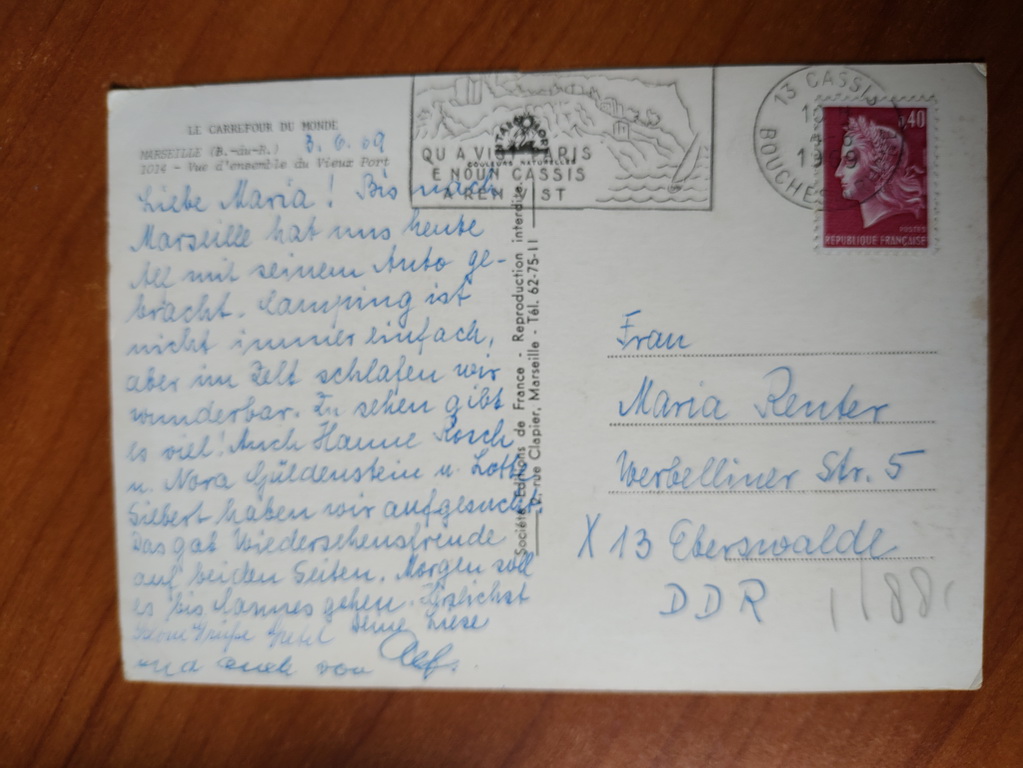 LE CARREFOUR DU MONDE
MARSEILLE (B.-du-R.)
2024 - Vue d'ensemble du Vieux Port
3.6.69
Liebe Maria! Bis nach
Marseille hat uns heute
Alf mit seinem Auto ge-
bracht. Camping ist
nicht immer einfach,
aber im Zelt schlafen wir
wunderbar. Zu sehen gibt
es viel! Auch Hanne
u. Nora Güldenstein u. Lotte
Siebert haben wir aufgesucht.
Das gab Wiedersehensfreude
auf beiden Seiten. Morgen soll
es bis Cannes gehen. Herzlichst
Deine Liese
und auch von Alf.
QU A VIST PARIS
E NOUN CASSIS
A REN VIST
COULEURS NATURELLES
Société Editions de France - Reproduction interdite
rue Clapier, Marseille - Tél. 62-75-11
13 CASSIS
1969
BOUCHES
0,40
POSTES
REPUBLIQUE FRANÇAISE
Frau
Maria Reuter
Werbelliner Str. 5
X 13 Eberswalde
DDR